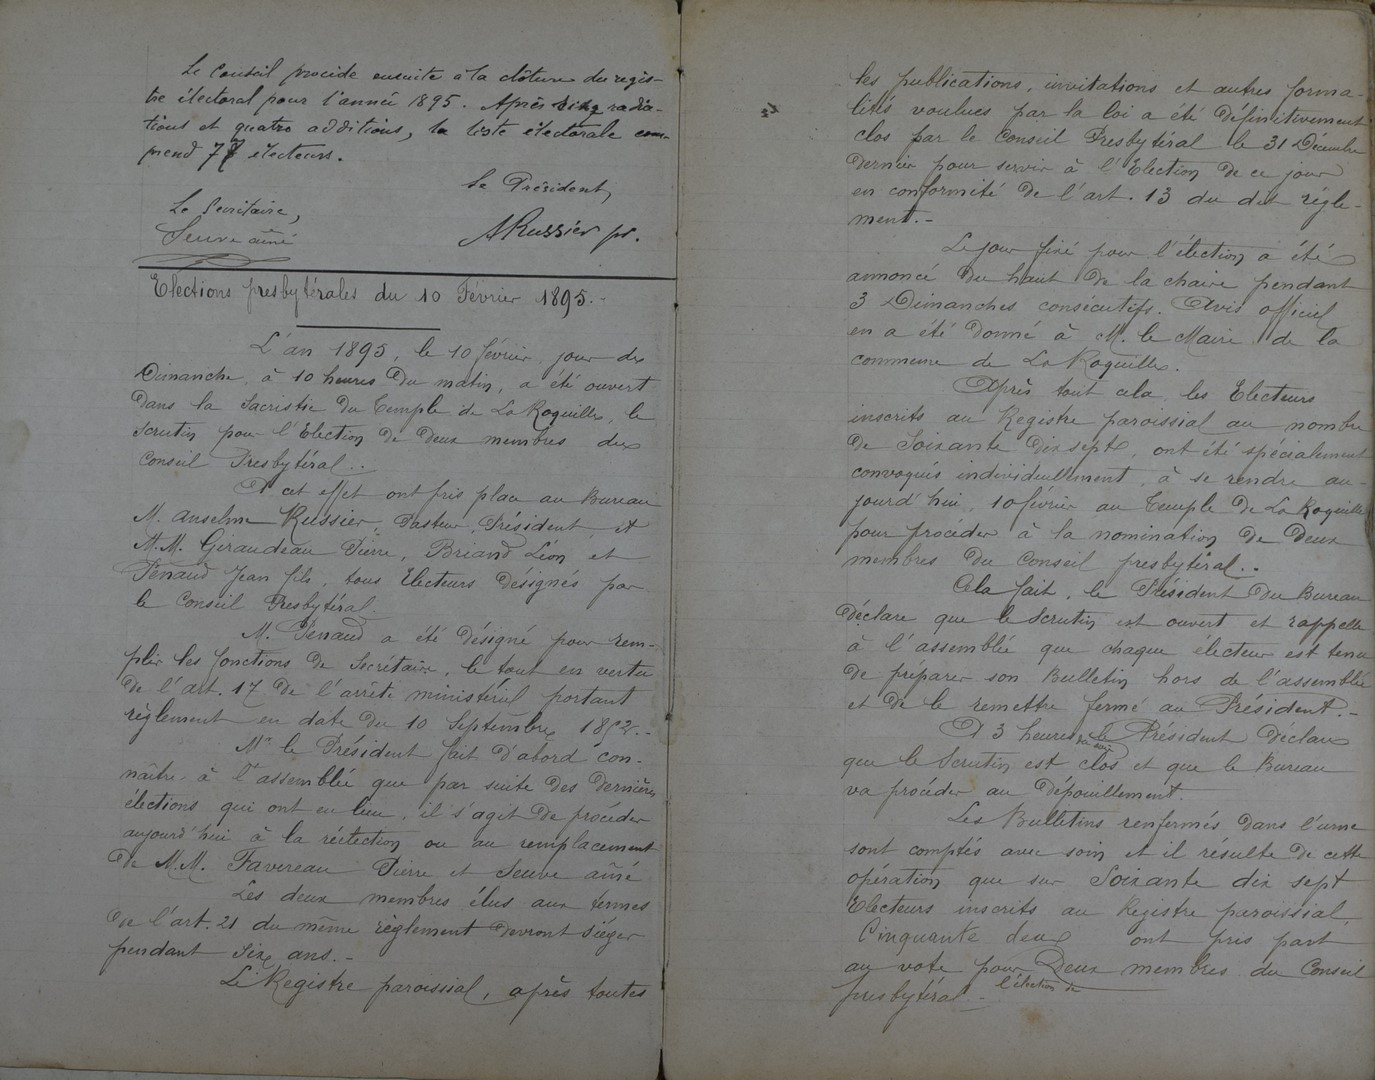 Le Conseil procède ensuite à la clôture du regis-
tre électoral pour l'année 1895. Après cinq radia-
tions et quatre additions, la liste électorale com-
prend 77 électeurs.
Le Président,
Le Secrétaire,
Seuve aîné
ARussier pr.
Elections presbytérales du 10 Février 1895.-
L'an 1895, le 10 février, jour de
Dimanche, à 10 heures du matin, a été ouvert
dans la Sacristie du Temple de La Roquille, le
Scrutin pour l'Election de deux membres du
Conseil Presbytéral..
A cet effet ont pris place au Bureau
M. Anselme Russier, Pasteur, Président, et
M.M. Giraudeau Pierre, Briand Léon, et
Penaud Jean fils, tous Electeurs désignés par
le Conseil Presbytéral.
M. Penaud a été désigné pour rem-
plir les fonctions de Secrétaire, le tout en vertu
de l'art. 17 de l'arrêté ministériel portant
règlement en date du 10 Septembre 1852.-
Mr le Président fait d'abord con-
naître à l'assemblée que par suite des dernières
élections qui ont eu lieu, il s'agit de procéder
aujourd'hui à la réélection ou au remplacement
de M.M. Favereau Pierre et Seuve aîné
Les deux membres élus aux termes
de l'art. 21 du même règlement devront siéger
pendant six ans.-
Le Registre paroissial, après toutes
les publications, invitations et autres forma-
lités voulues par la loi a été définitivement
clos par le Conseil Presbytéral le 31 Décembre
dernier pour servir à l'Election de ce jour
en conformité de l'art. 13 du dit règle-
ment.-
Le jour fixé pour l'élection a été
annoncé du haut de la chaire pendant
3 Dimanches consécutifs. Avis officiel
en a été donné à M. le Maire de la
commune de La Roquille.
Après tout cela, les Electeurs
inscrits au Registre paroissial au nombre
de Soixante dix sept, ont été spécialement
convoqués individuellement, à se rendre au-
jourd'hui, 10 février au Temple de La Roquille
pour procéder à la nomination de deux
membres du Conseil presbytéral..
Cela fait, le Président du Bureau
déclare que le Scrutin est ouvert et rappelle
à l'assemblée que chaque électeur est tenu
de préparer son Bulletin hors de l'assemblée
et de le remettre fermé au Président.-
A 3 heures du soir le Président déclare
que le Scrutin est clos et que le Bureau
va procéder au dépouillement.
Les Bulletins renfermés dans l'urne
sont comptés avec soin et il résulte de cette
opération que sur Soixante dix sept
Electeurs inscrits au Registre paroissial
Cinquante deux ont pris part
au vote pour l'élection de Deux membres du Conseil
presbytéral.-